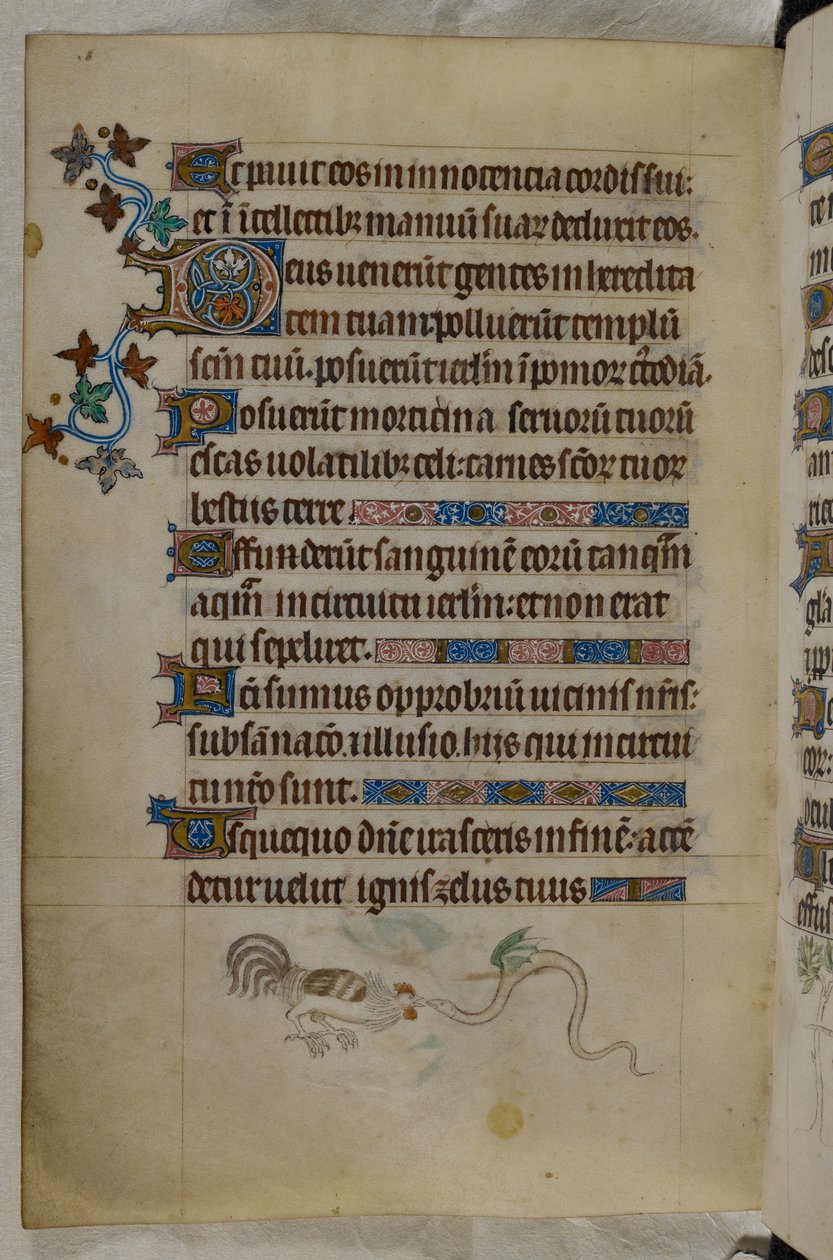 Et pauit eos in innocencia cordis sui:
et ī ītellectibꝫ manuū suaꝝ deduxit eos.
Deus uenerūt gentes in heredita
tem tuam: polluerūt templū
scm̄ tuū. posuerūt ierlm̄ ī pomoꝝ c̄todiā.
Posuerūt morticina seruorū tuorū
escas uolatilibꝫ celi: carnes sc̄oꝝ tuoꝝ
bestiis terre.
Effunderūt sanguinē eorū tanqᵃm
aqᵃm in circuitu ierlm̄: et non erat
qui sepeliret.
Fc̄i sumus opprobriū uicinis nr̄is:
subsānac̄o. ⁊ illusio. hijs qui in circui
tu nr̄o sunt.
Usquequo dn̄e irasceris in finē: accē
detur uelut ignis zelus tuus